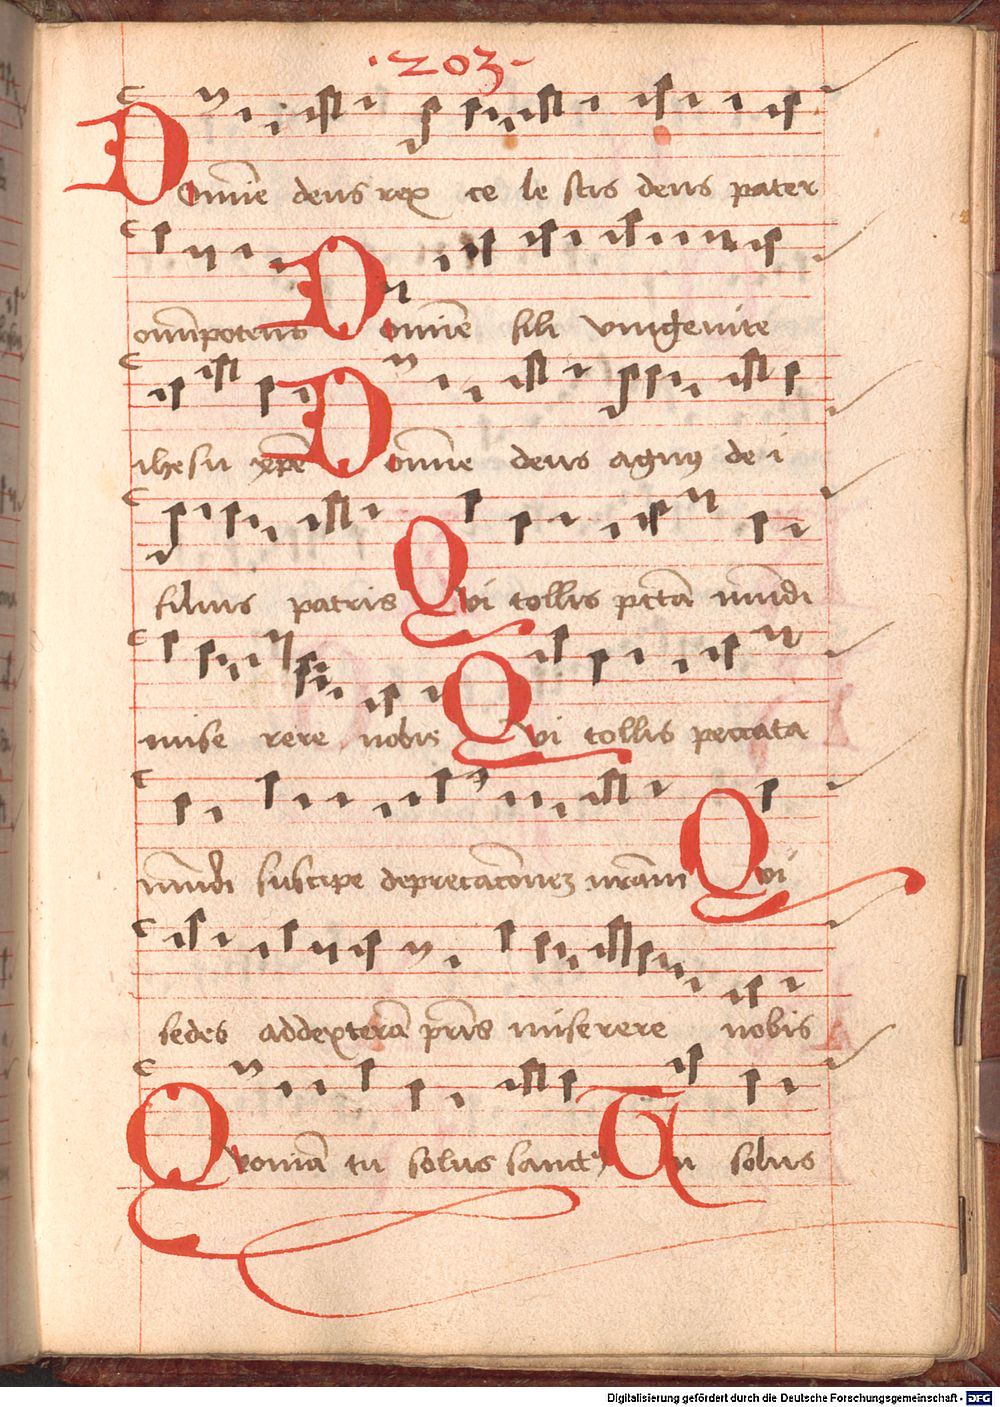 ·203·
Domine deus rex ce le stis deus pater
omnipotens Domine fili unigenite
ihesu xpe Domine deus agnus de i
filius patris Qvi tollis pctā mundi
mise rere nobis Qvi tollis peccata
mundi suscipe deprecacōnez nrām Qvi
sedes addexterā pris miserere nobis
Qvoniā tu solus sanctꝯ Tu solus
Digitalisierung gefördert durch die Deutsche Forschungsgemeinschaft - DFG